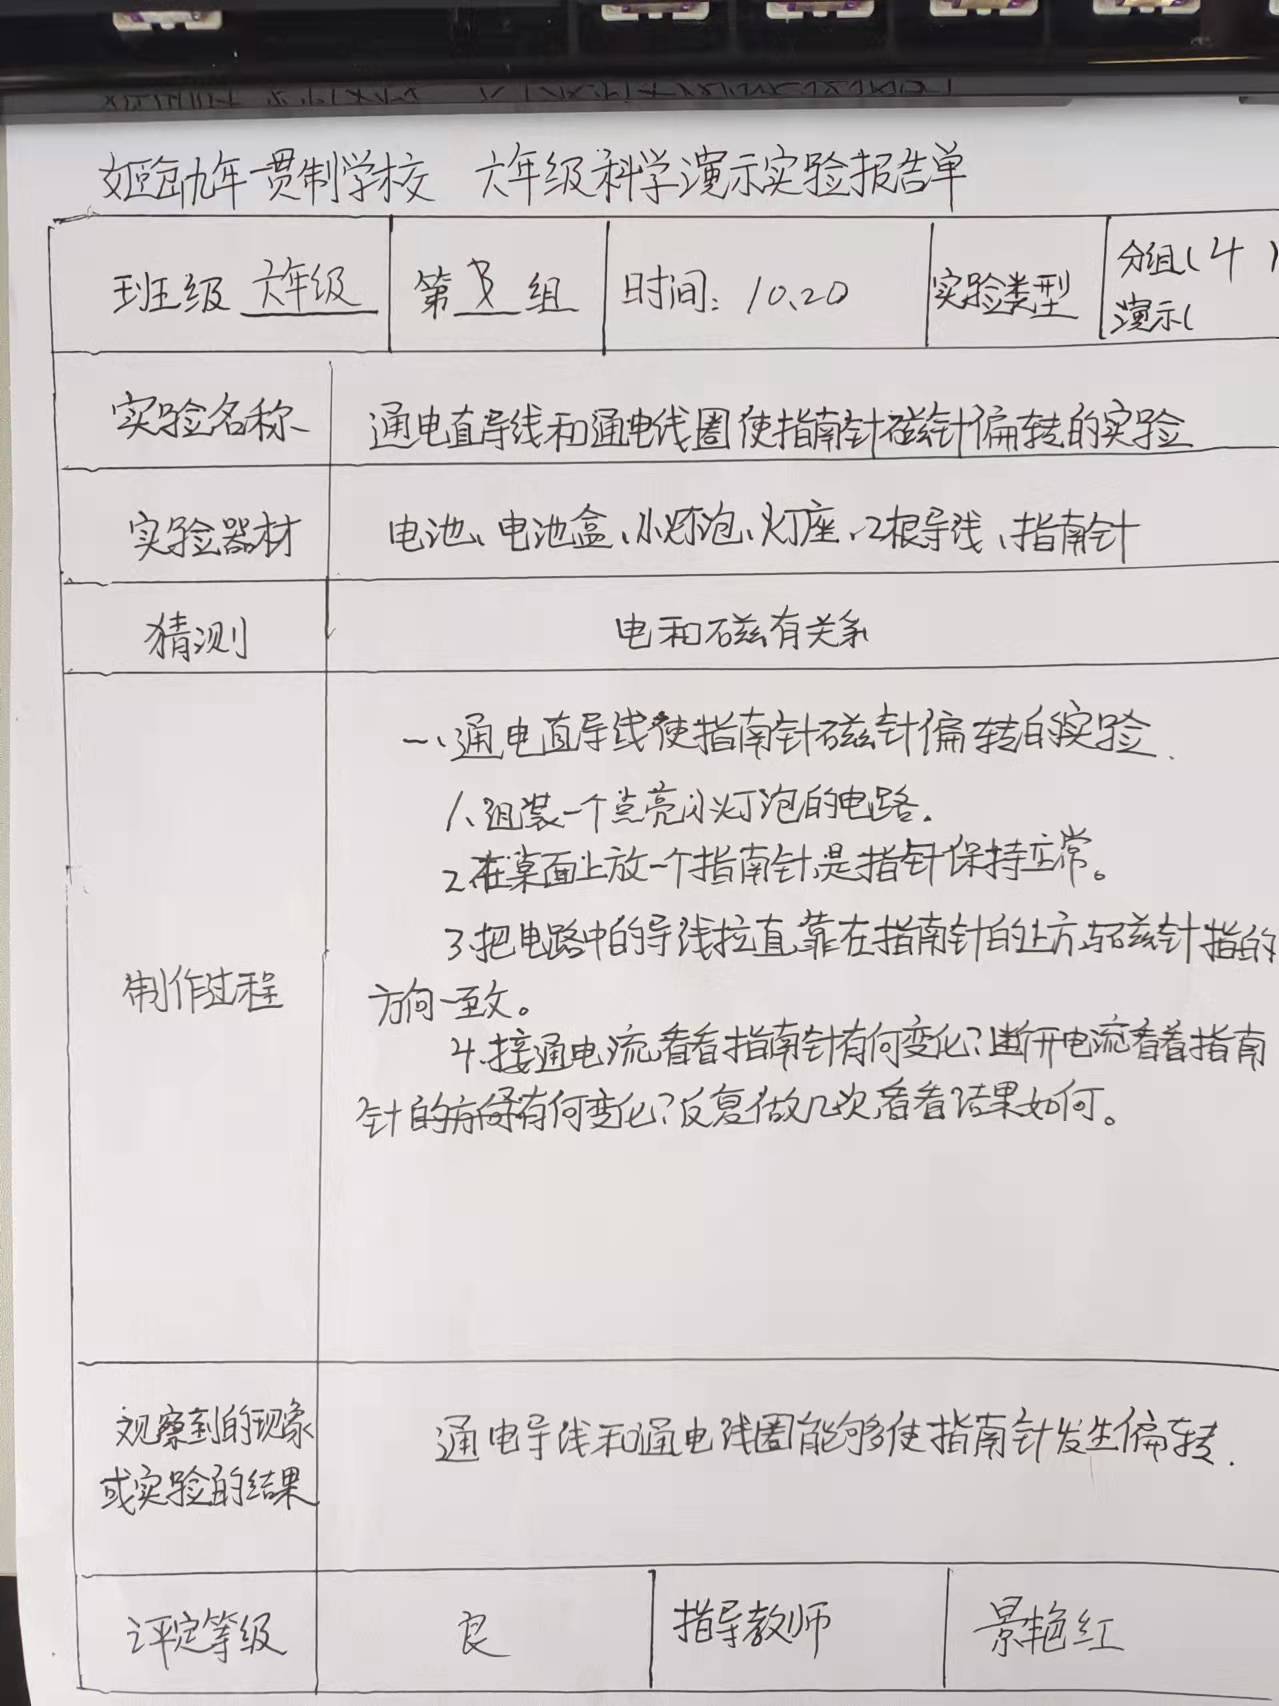 九年一贯制学校 六年级科学演示实验报告单
班级 六年级 第 组 时间: 10.20 实验类型 分组(4)
演示(
实验名称 通电直导线和通电线圈使指南针磁针偏转的实验
实验器材 电池、电池盒、小灯泡、灯座、2根导线、指南针
猜测 电和磁有关系
制作过程
一、通电直导线使指南针磁针偏转的实验.
1、组装一个点亮小灯泡的电路.
2、在桌面上放一个指南针,是指针保持正常。
3、把电路中的导线拉直,靠在指南针的上方,与磁针指的
方向一致。
4、接通电流,看看指南针有何变化?断开电流看看指南
针的方向有何变化?反复做几次,看看结果如何。
观察到的现象
或实验的结果
通电导线和通电线圈能够使指南针发生偏转.
评定等级 良 指导教师 景艳红